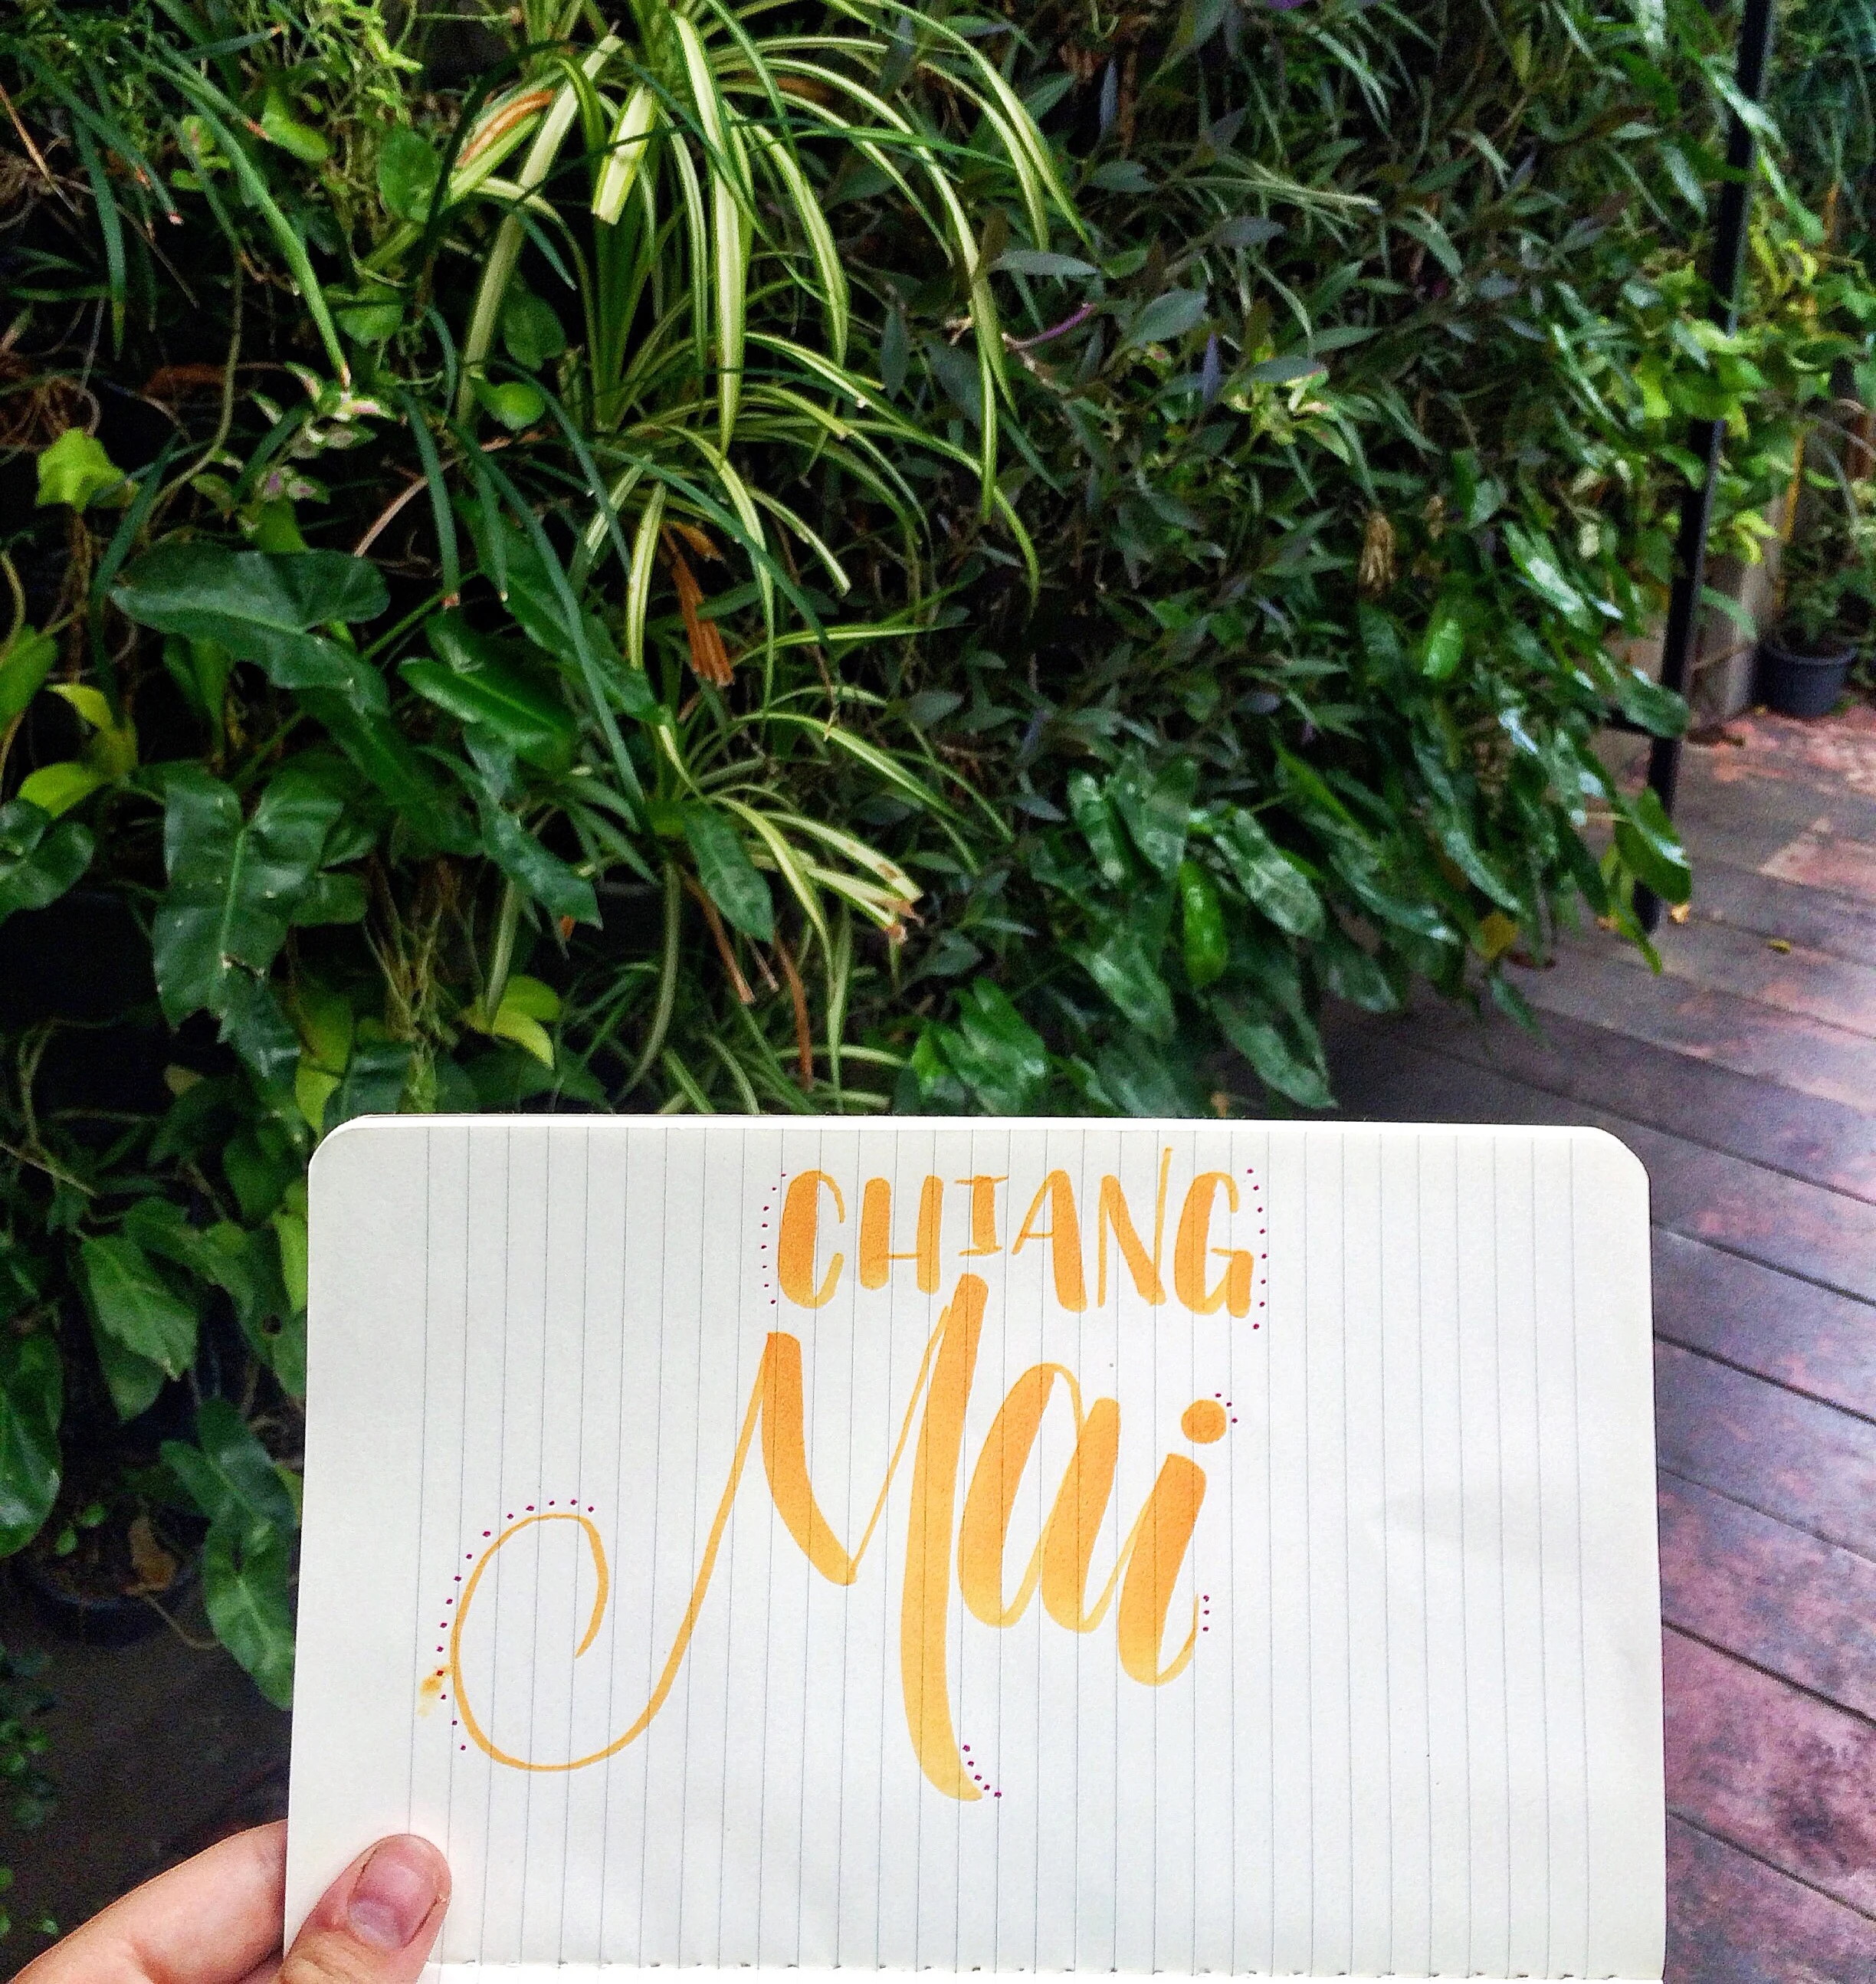 CHIANG
Mai